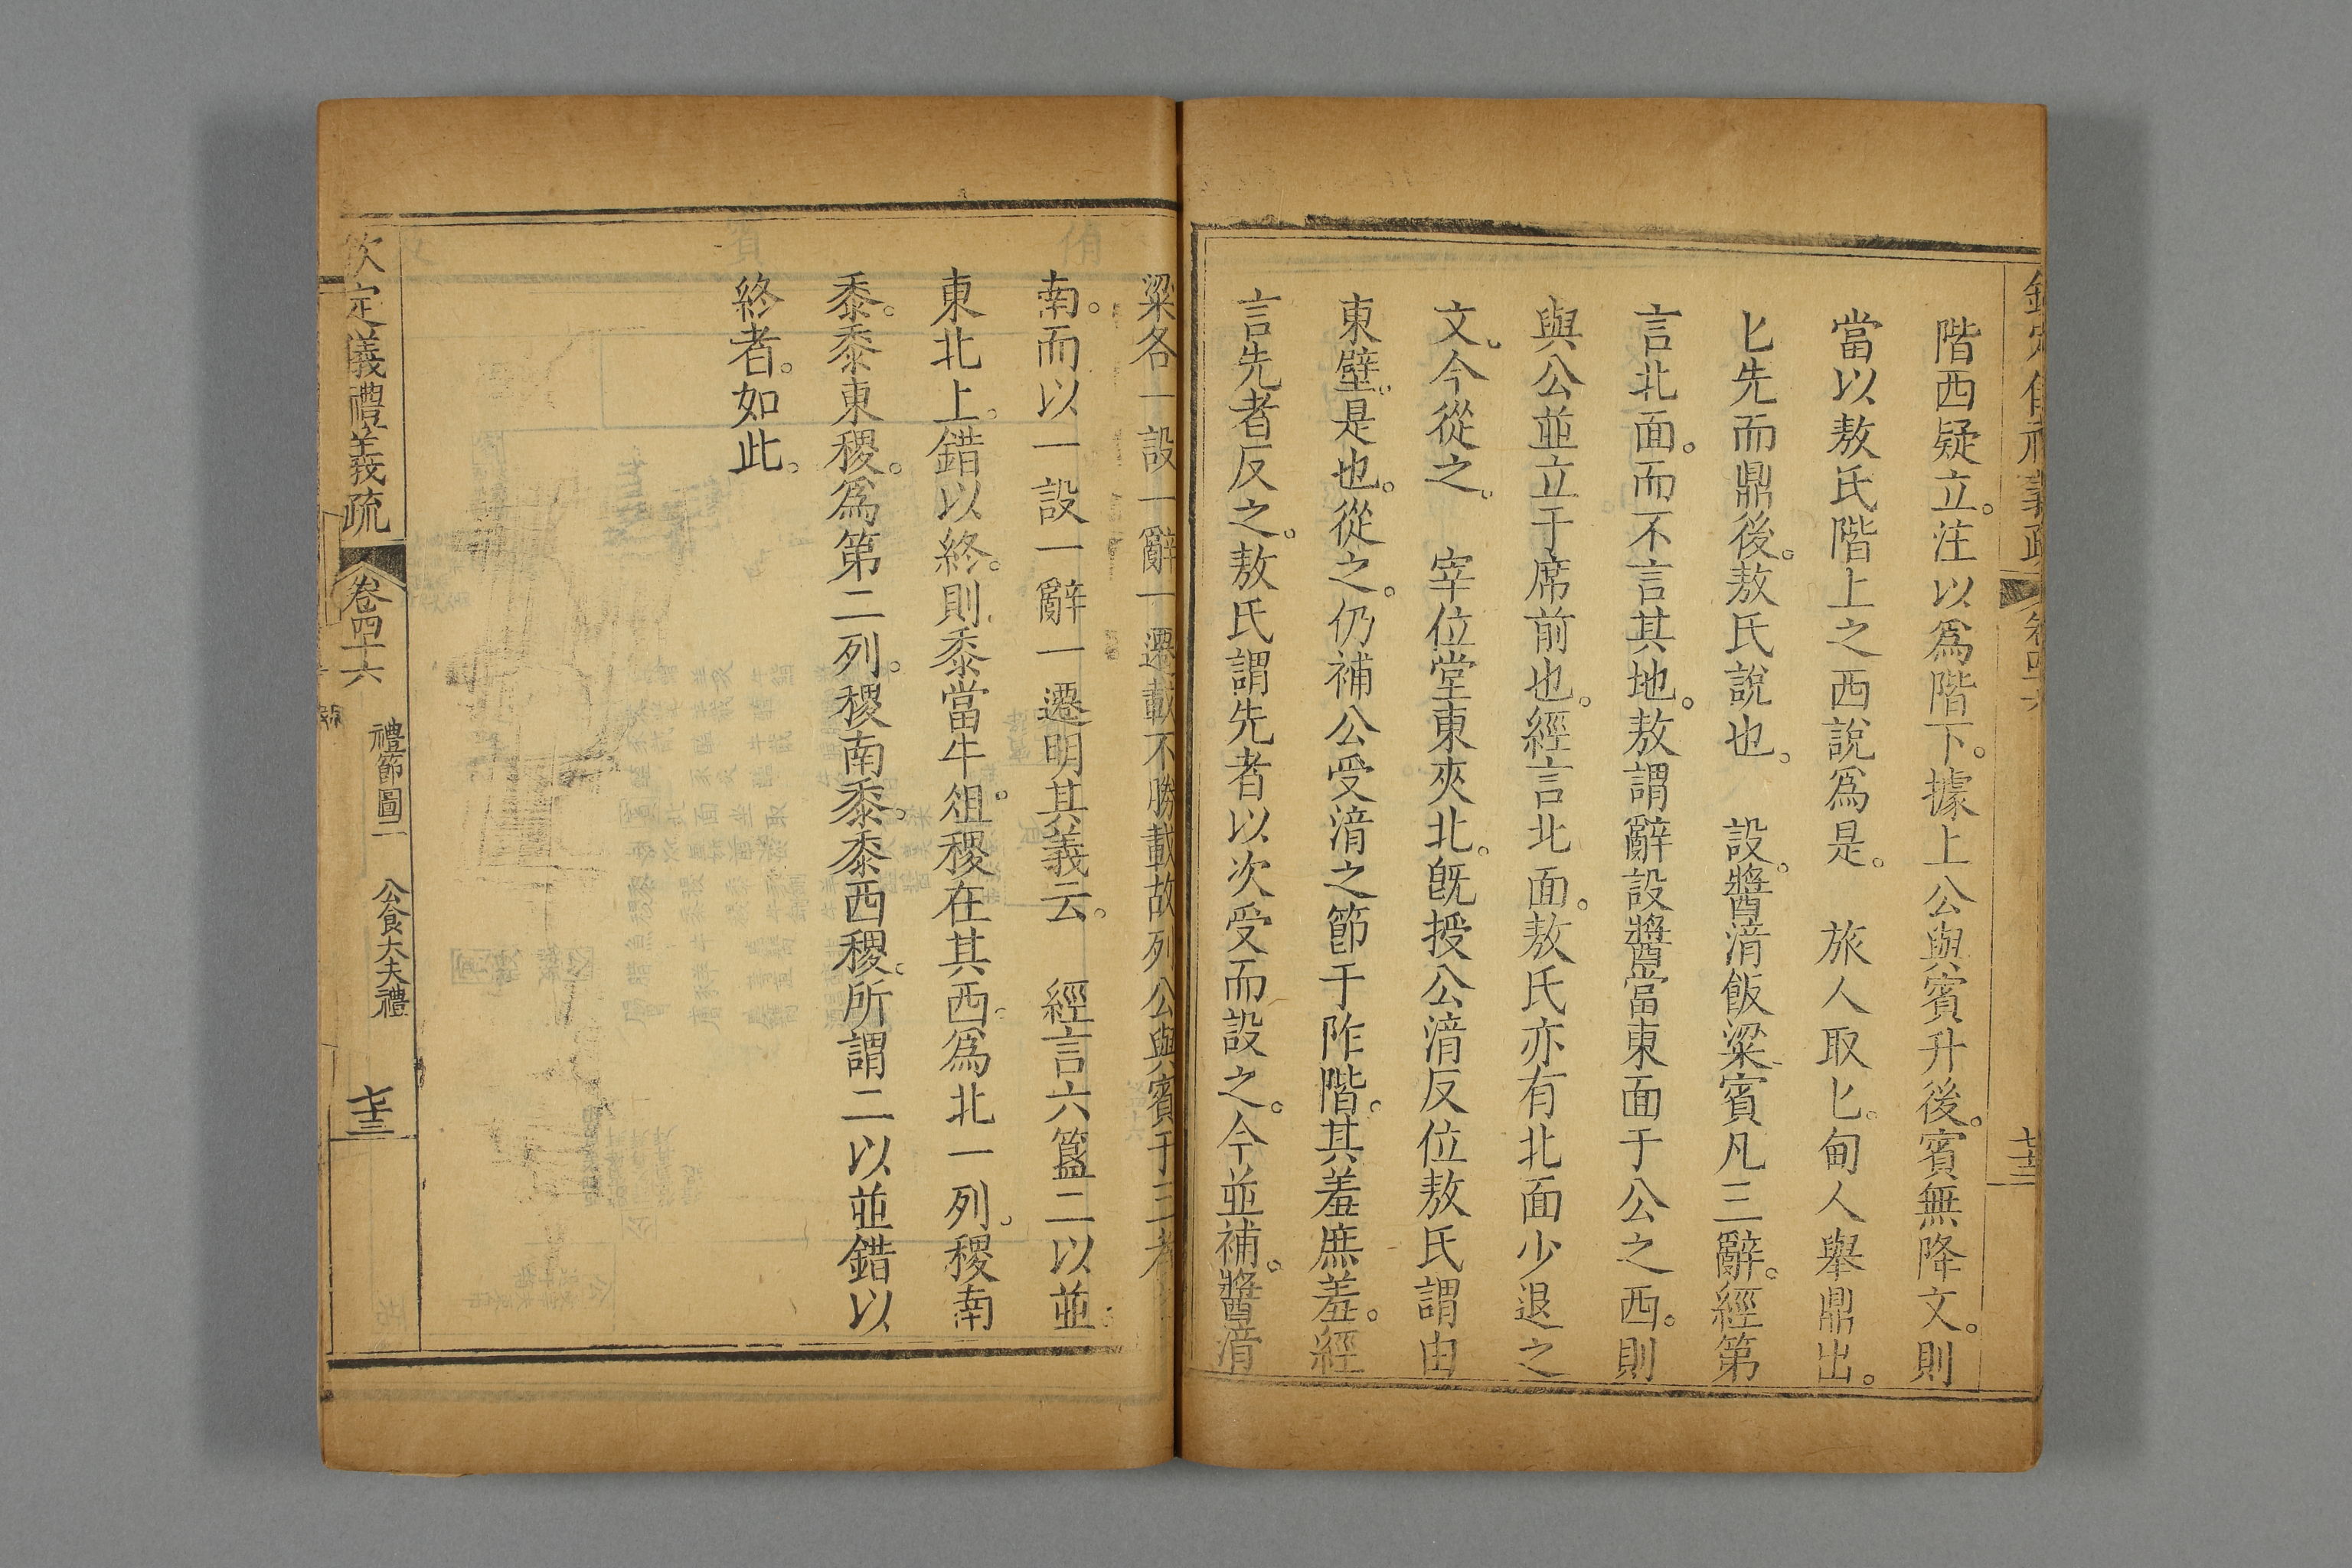 階西疑立。注以爲階下。據上公與賓升後。賓無降文。則
當以敖氏階上之西說爲是。　旅人取匕。甸人舉鼎出。
匕先而鼎後。敖氏說也。　設醬湆飯粱賓凡三辭。經第
言北面。而不言其地。敖謂辭設醬當東面于公之西。則
與公並立于席前也。經言北面。敖氏亦有北面少退之
文。今從之。　宰位堂東夾北。旣授公湆反位敖氏謂由
東壁。是也。從之。仍補公受湆之節于阼階。其羞庶羞。經
言先者反之。敖氏謂先者以次受而設之。今並補。醬湆
粱各一設一辭一遷載不勝載故列公與賓于三者
南。而以一設一辭一遷明其義云。　經言六簋二以並。
東北上。錯以終。則黍當牛俎。稷在其西。爲北一列。稷南
黍。黍東稷。爲第二列。稷南黍。黍西稷。所謂二以並錯以
終者。如此。
欽定儀禮義疏
卷四十六
禮節圖二
公食大夫禮
七十三